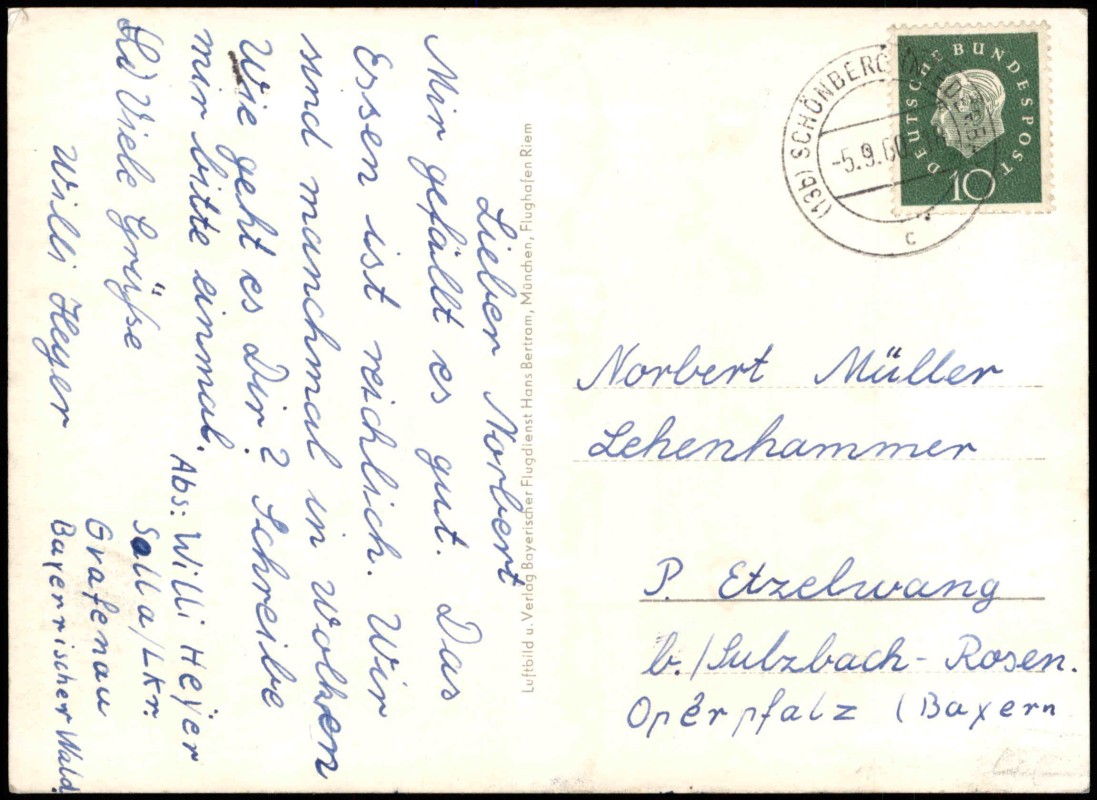 Lieber Norbert
Mir gefällt es gut. Das
Essen ist reichlich. Wir
sind manchmal in Wolken
Wie geht es Dir? Schreibe
mir bitte einmal.
Viele Grüße
Willi Heyer
Abs: Willi Heyer
Salla/Lkr.
Grafenau
Bayerischer Wald
Luftbild u. Verlag Bayerischer Flugdienst Hans Bertram, München, Flughafen Riem
DEUTSCHE BUNDESPOST
10
(13b) SCHÖNBERG
-5.9.60
c
Norbert Müller
Lehenhammer
P. Etzelwang
b./Sulzbach-Rosen.
Operpfalz (Bayern